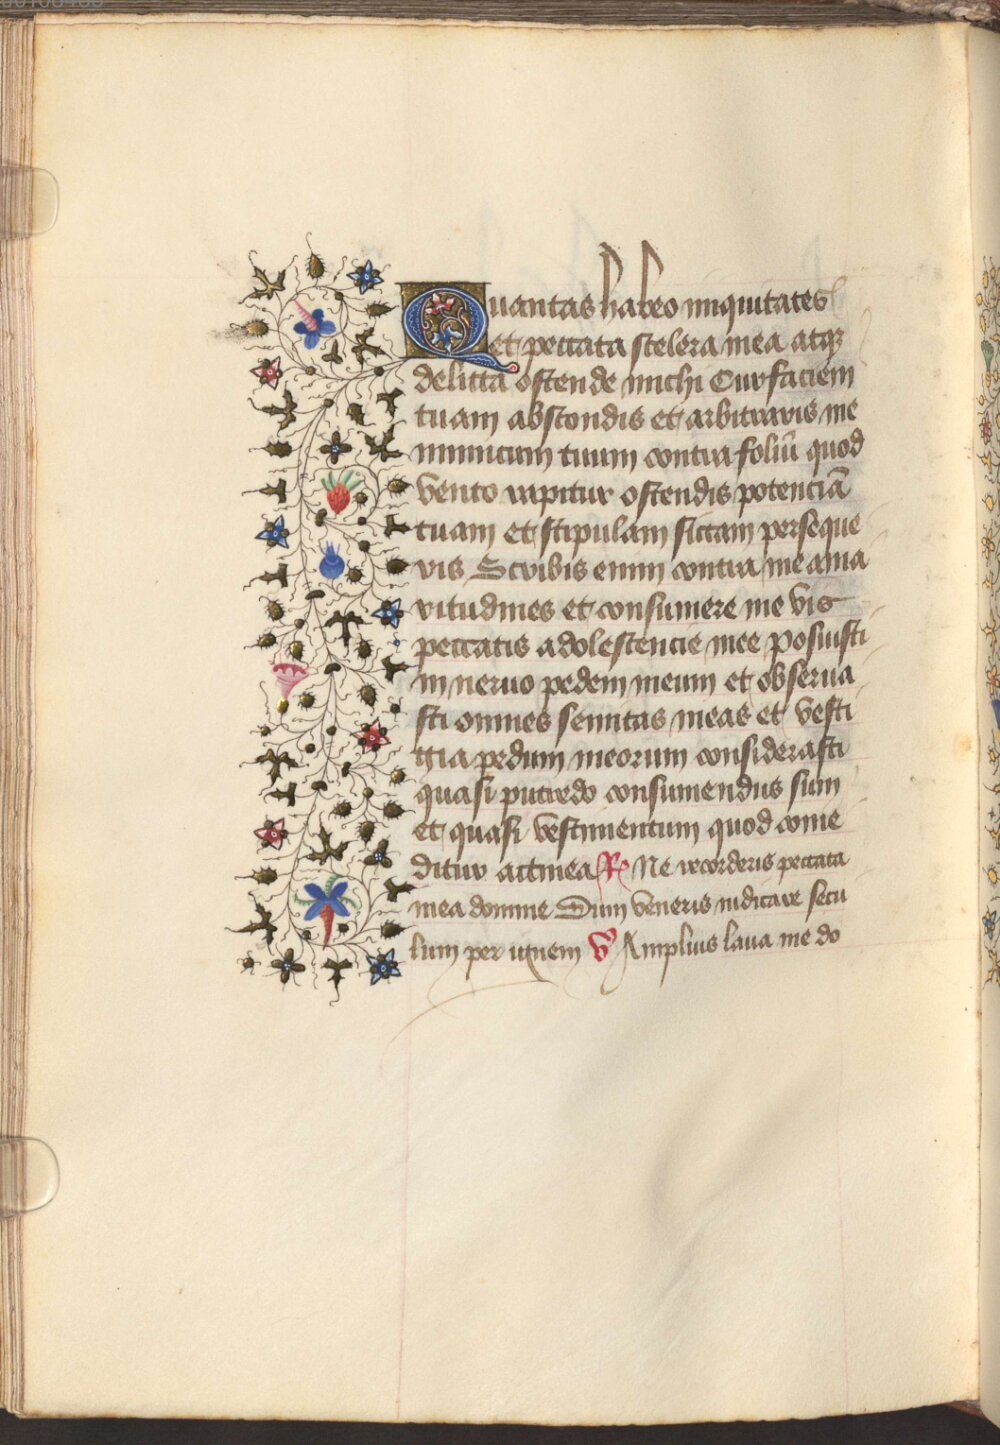 Quantas habeo iniquitates
et peccata scelera mea atq
delicta ostende michi Cur faciem
tuam abscondis et arbitraris me
inimicum tuum contra foliū quod
vento rapitur ostendis potenciā
tuam et stipulam siccam perseque
ris Scribis enim contra me ama
ritudines et consumere me vis
peccatis adolescencie mee Posuisti
in neruo pedem meum et obserua
sti omnes semitas meas et vesti
gia pedum meorum considerasti
quasi putredo consumendus sum
et quasi vestimentum quod come
ditur a tinea R Ne recorderis peccata
mea domine Dum veneris iudicare secu
lum per ignem V Amplius laua me do